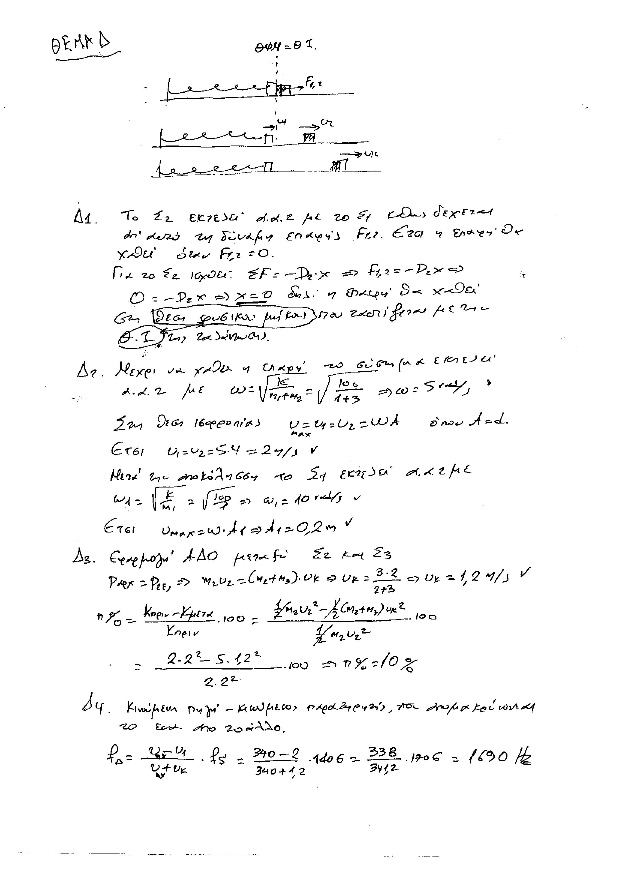 ΘΕΜΑ Δ
ΘΦΜ=ΘΙ.
F₁,₂
υ₁ υ₂
υ₂
Δ1. Το Σ₂ εκτελεί α.α.τ με το Σ₁ καθώς δέχεται
απ' αυτό τη δύναμη επαφής F₁,₂. Έτσι η επαφή θα
χαθεί όταν F₁,₂=0.
Για το Σ₂ ισχύει: ΣF=-D₂·x ⇒ F₁,₂=-D₂x ⇒
0=-D₂x ⇒ x=0 δηλ. η επαφή θα χαθεί
στη θέση φυσικού μήκους που ταυτίζεται με την
Θ.Ι της ταλάντωσης.
Δ2. Μέχρι να χαθεί η επαφή το σύστημα εκτελεί
α.α.τ με ω=√(k/(m₁+m₂))=√(100/(1+3)) ⇒ ω=5 rad/s
Στη θέση ισορροπίας υmax=υ₁=υ₂=ωΑ όπου Α=d.
Έτσι υ₁=υ₂=5·4=2m/s ✓
Μετά την αποκόλληση το Σ₁ εκτελεί α.α.τ με
ω₁=√(k/m₁)=√(100/1) ⇒ ω₁=10 rad/s ✓
Έτσι υmax=ω·Α₁ ⇒ Α₁=0,2m ✓
Δ3. Εφαρμογή ΑΔΟ μεταξύ Σ₂ και Σ₃
Pαρχ=Pτελ ⇒ m₂υ₂=(m₂+m₃)·υκ ⇒ υκ=3·2/(2+3) ⇒ υκ=1,2 m/s ✓
π%=(Κπριν-Κμετα)/Κπριν·100=(½m₂υ₂²-½(m₂+m₃)υκ²)/(½m₂υ₂²)·100
=(2·2²-5·12²)/(2·2²)·100 ⇒ π%=10%
Δ4. Κινούμενη πηγή - κινούμενος παρατηρητής, που απομακρύνονται
το ένα απο το άλλο.
fΔ=(υ-υ₁)/(υ+υκ)·fs=(340-2)/(340+1,2)·1706=338/341,2·1706=1690 Hz